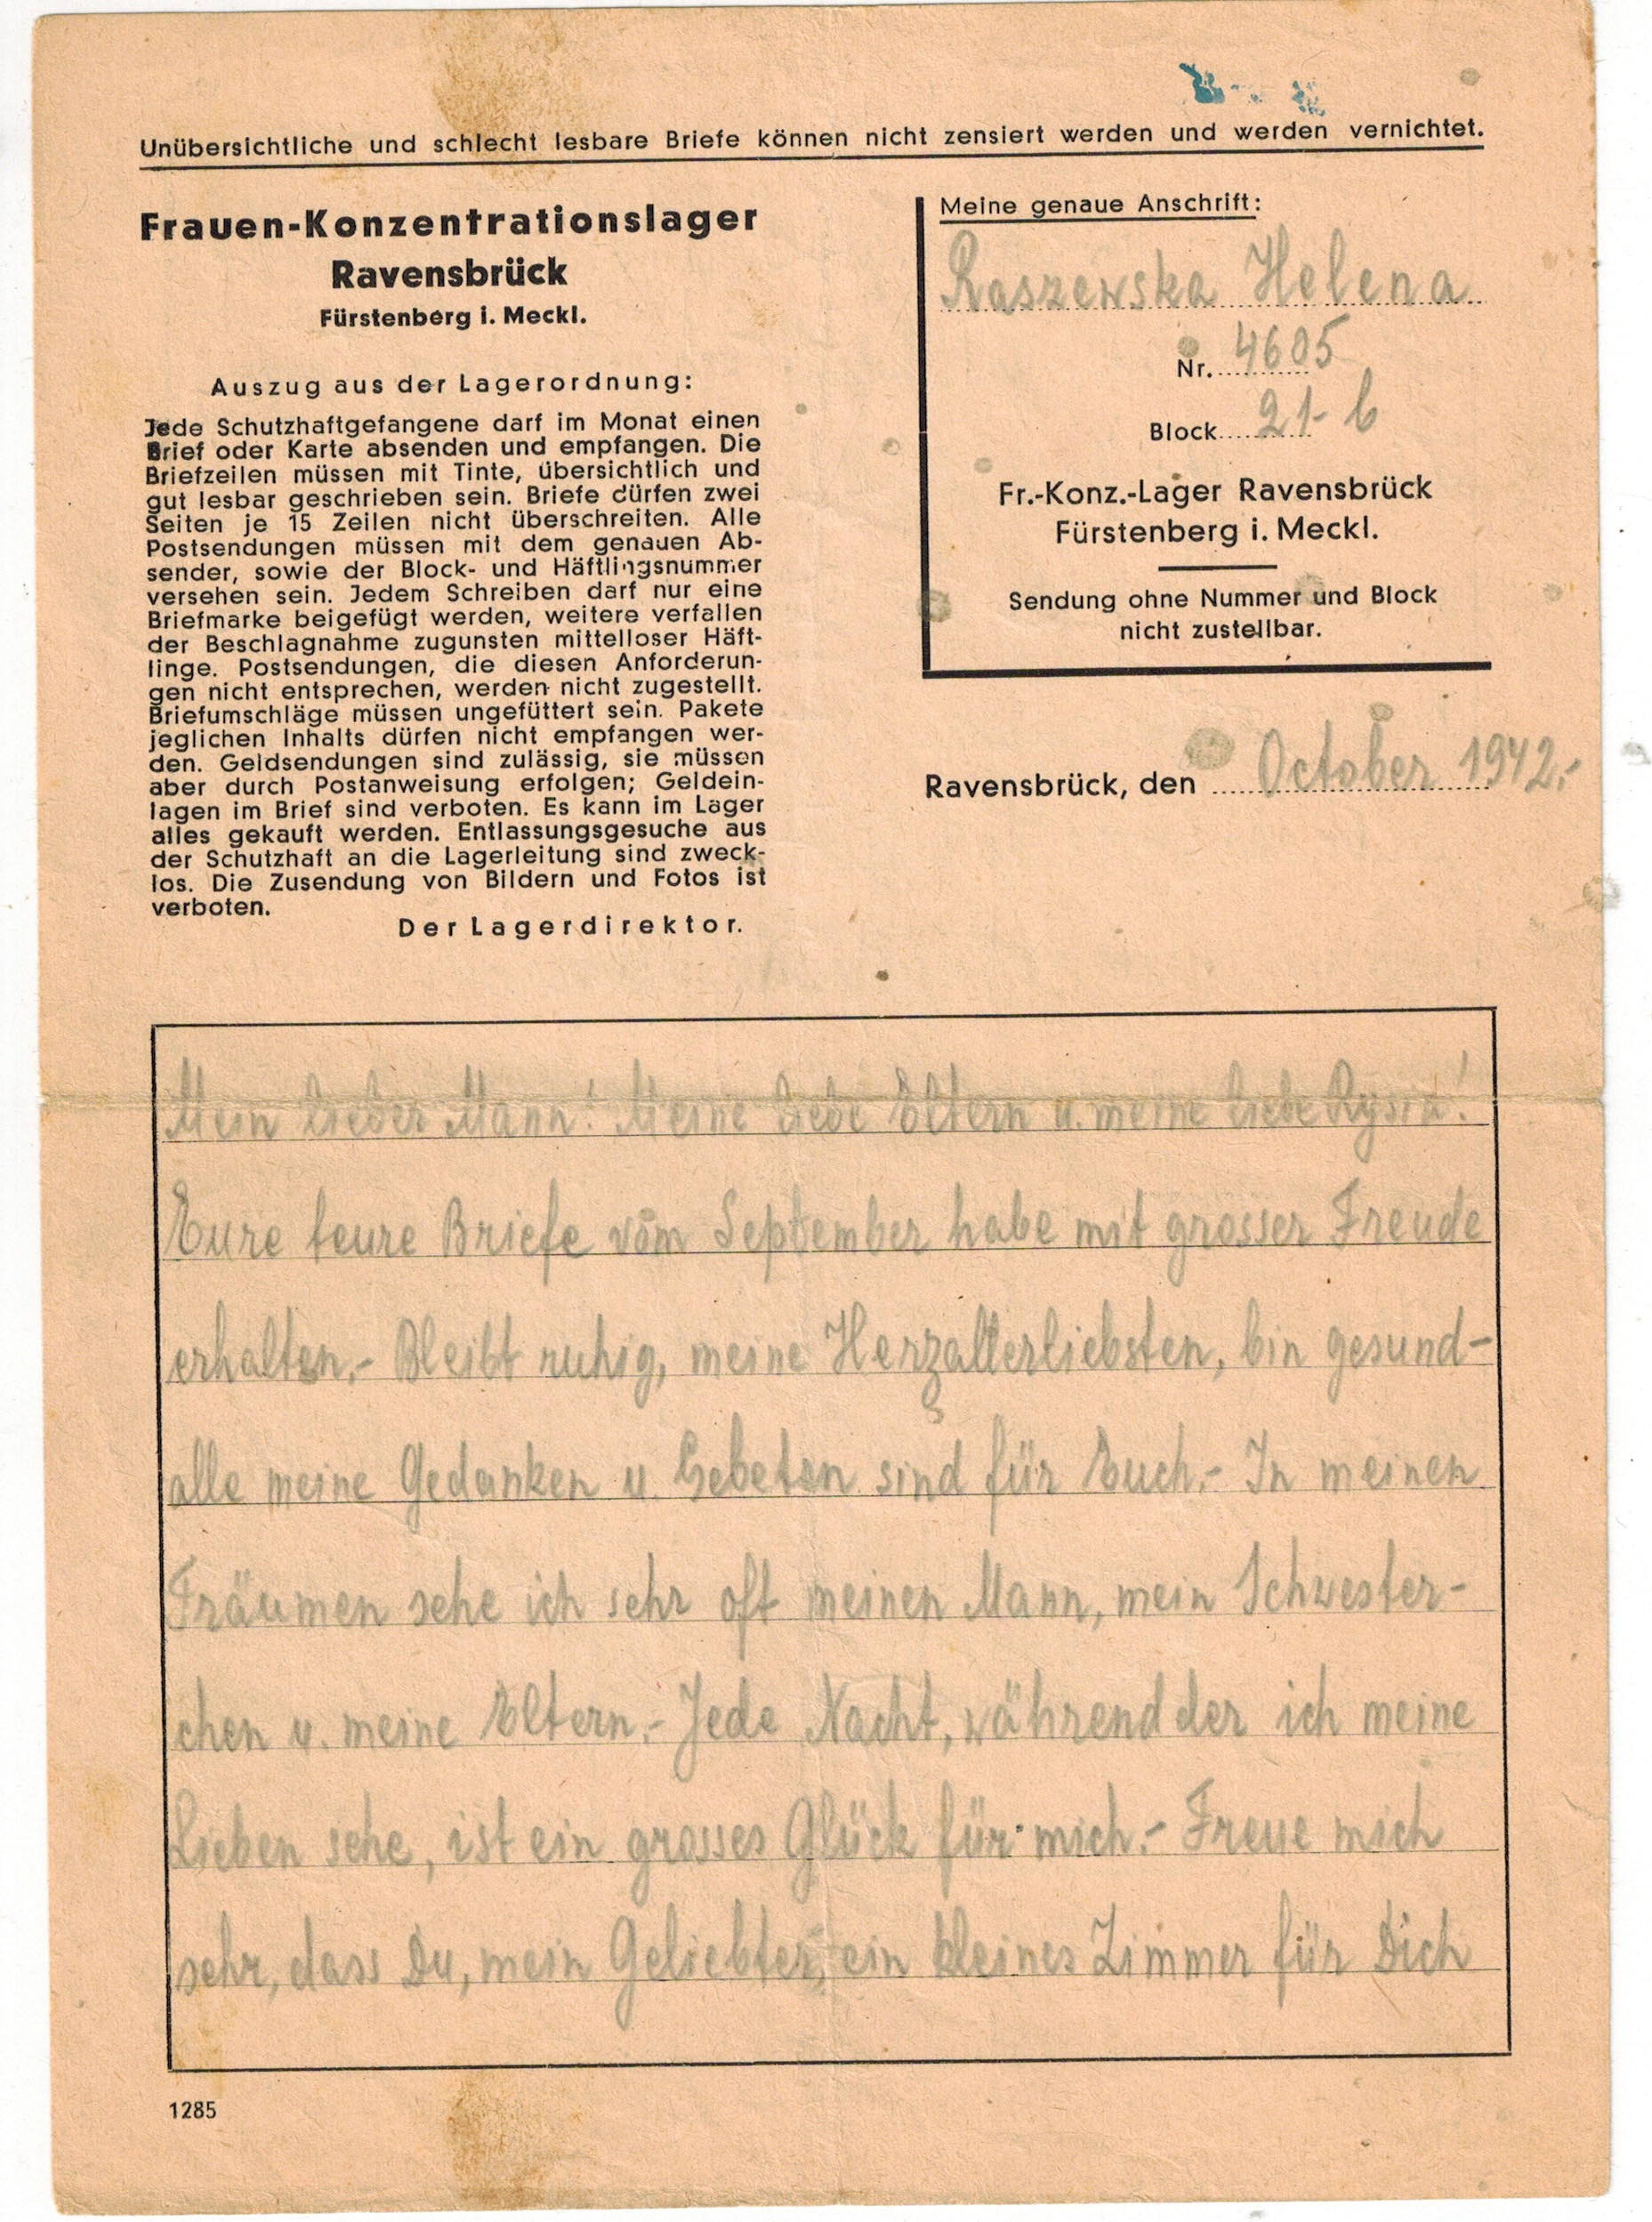 Unübersichtliche und schlecht lesbare Briefe können nicht zensiert werden und werden vernichtet.
Frauen-Konzentrationslager
Ravensbrück
Fürstenberg i. Meckl.
Auszug aus der Lagerordnung:
Jede Schutzhaftgefangene darf im Monat einen
Brief oder Karte absenden und empfangen. Die
Briefzeilen müssen mit Tinte, übersichtlich und
gut lesbar geschrieben sein. Briefe dürfen zwei
Seiten je 15 Zeilen nicht überschreiten. Alle
Postsendungen müssen mit dem genauen Ab-
sender, sowie der Block- und Häftlingsnummer
versehen sein. Jedem Schreiben darf nur eine
Briefmarke beigefügt werden, weitere verfallen
der Beschlagnahme zugunsten mittelloser Häft-
linge. Postsendungen, die diesen Anforderun-
gen nicht entsprechen, werden nicht zugestellt.
Briefumschläge müssen ungefüttert sein. Pakete
jeglichen Inhalts dürfen nicht empfangen wer-
den. Geldsendungen sind zulässig, sie müssen
aber durch Postanweisung erfolgen; Geldein-
lagen im Brief sind verboten. Es kann im Lager
alles gekauft werden. Entlassungsgesuche aus
der Schutzhaft an die Lagerleitung sind zweck-
los. Die Zusendung von Bildern und Fotos ist
verboten.
Der Lagerdirektor.
Meine genaue Anschrift:
Raszewska Helena
Nr. 4605
Block 21-b
Fr.-Konz.-Lager Ravensbrück
Fürstenberg i. Meckl.
Sendung ohne Nummer und Block
nicht zustellbar.
Ravensbrück, den October 1942.-
Mein lieber Mann! Meine liebe Eltern u. meine liebe Rysia!
Eure teure Briefe vom September habe mit grosser Freude
erhalten.- Bleibt ruhig, meine Herzallerliebsten, bin gesund-
alle meine Gedanken u. Gebeten sind für Euch.- In meinen
Träumen sehe ich sehr oft meinen Mann, mein Schwester-
chen u. meine Eltern.- Jede Nacht, während der ich meine
Lieben sehe, ist ein grosses Glück für mich.- Freue mich
sehr, dass Du, mein Geliebter, ein kleines Zimmer für Dich
1285